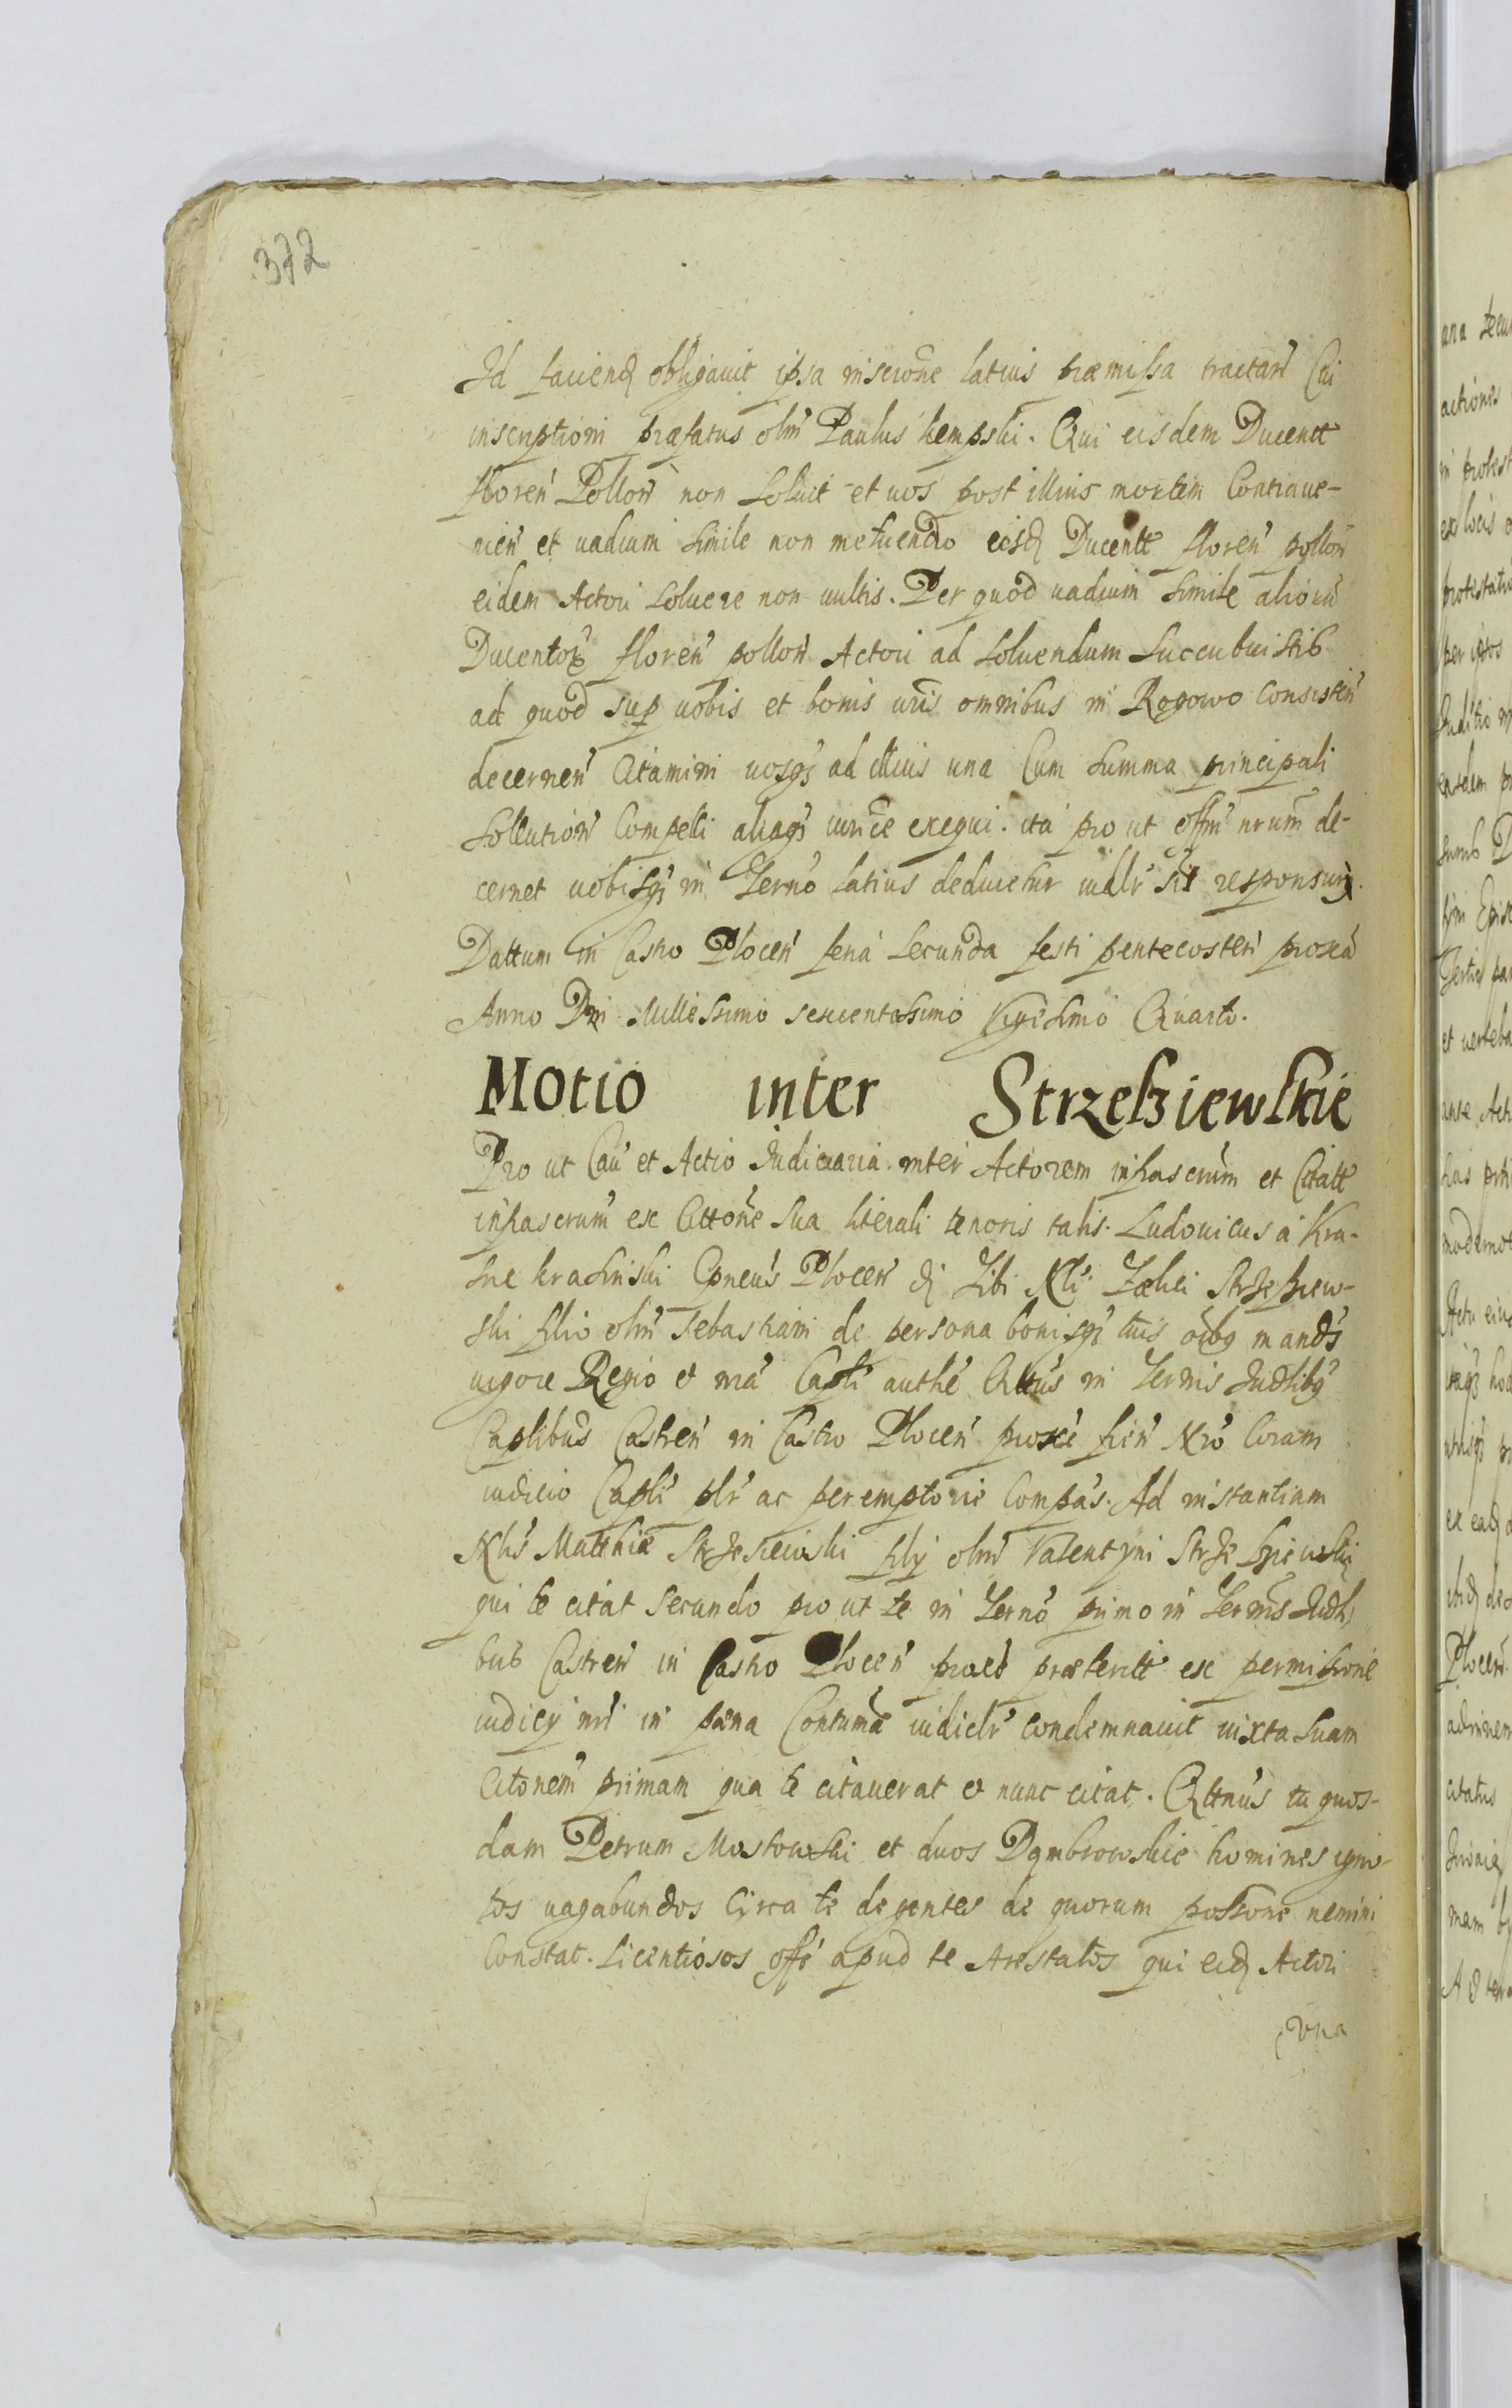 372
Id faciend obligavit ipsa inscrone latius præmissa tractan Cui
inscriptioni præfatus olim Paulus kempski. Qui eisdem Ducentt
floren Pollon non soluit et uos post illius mortem Contraue-
nien et uadium simile non metuendo eosd Ducentt floren pollon
eidem Actori soluere non uultis. Per quod uadium simile aliorum
Ducentor floren pollon Actori ad soluendum succubuistis
ad quod sup uobis et bonis uris omnibus in Rogowo consisten
decernen Citamini uosq ad illius una Cum summa principali
sollution Compelli aliaq iurice exequi. ita pro ut offm nrum de-
cernet uobisq in Termo latius deducetur iudlr sit responsuri.
Dattum in Castro Plocen feria secunda festi pentecosten proxa
Anno Dni Millessimo sexcentessimo Vigesimo Quarto.
Motio inter Strzelziewskie
Pro ut Cau et Actio Judiciaria inter Actorem infrascrum et Citatt
infrascrum ex Cittone sua literali tenoris talis. Ludouicus a Kra-
sne krasinski Cpneus Plocen d Tibi Nli Fœlici Strzesziew-
ski filio olim Sebastiani de persona bonisq tuis oibq mands
uigore Regio et mra Capli authe Cittus in Termis Judlibq
Caplibus Castren in Castro Plocen proxe fien Nro Coram
iudicio Capli plr ac peremptorie Compas. Ad instantiam
Nlis Matthiæ Strzesiewski filij olim Valentyni Strzesziewski
qui te citat secundo pro ut te in Termo primo in Termis Judli
bus Castren in Castro Plocen proxe præteritt ex permissione
iudicij nri in pœna Contuma iudiclr condemnauit iuxta suam
Citonem primam qua te citauerat et nunc citat. Qttnus tu quos-
dam Petrum Mostowski et duos Dąmbrowskie homines igno-
tos uagabundos Circa te degentes de quorum possone nemini
Constat. Licentiosos offe apud te Arestatos qui eid Actori
una